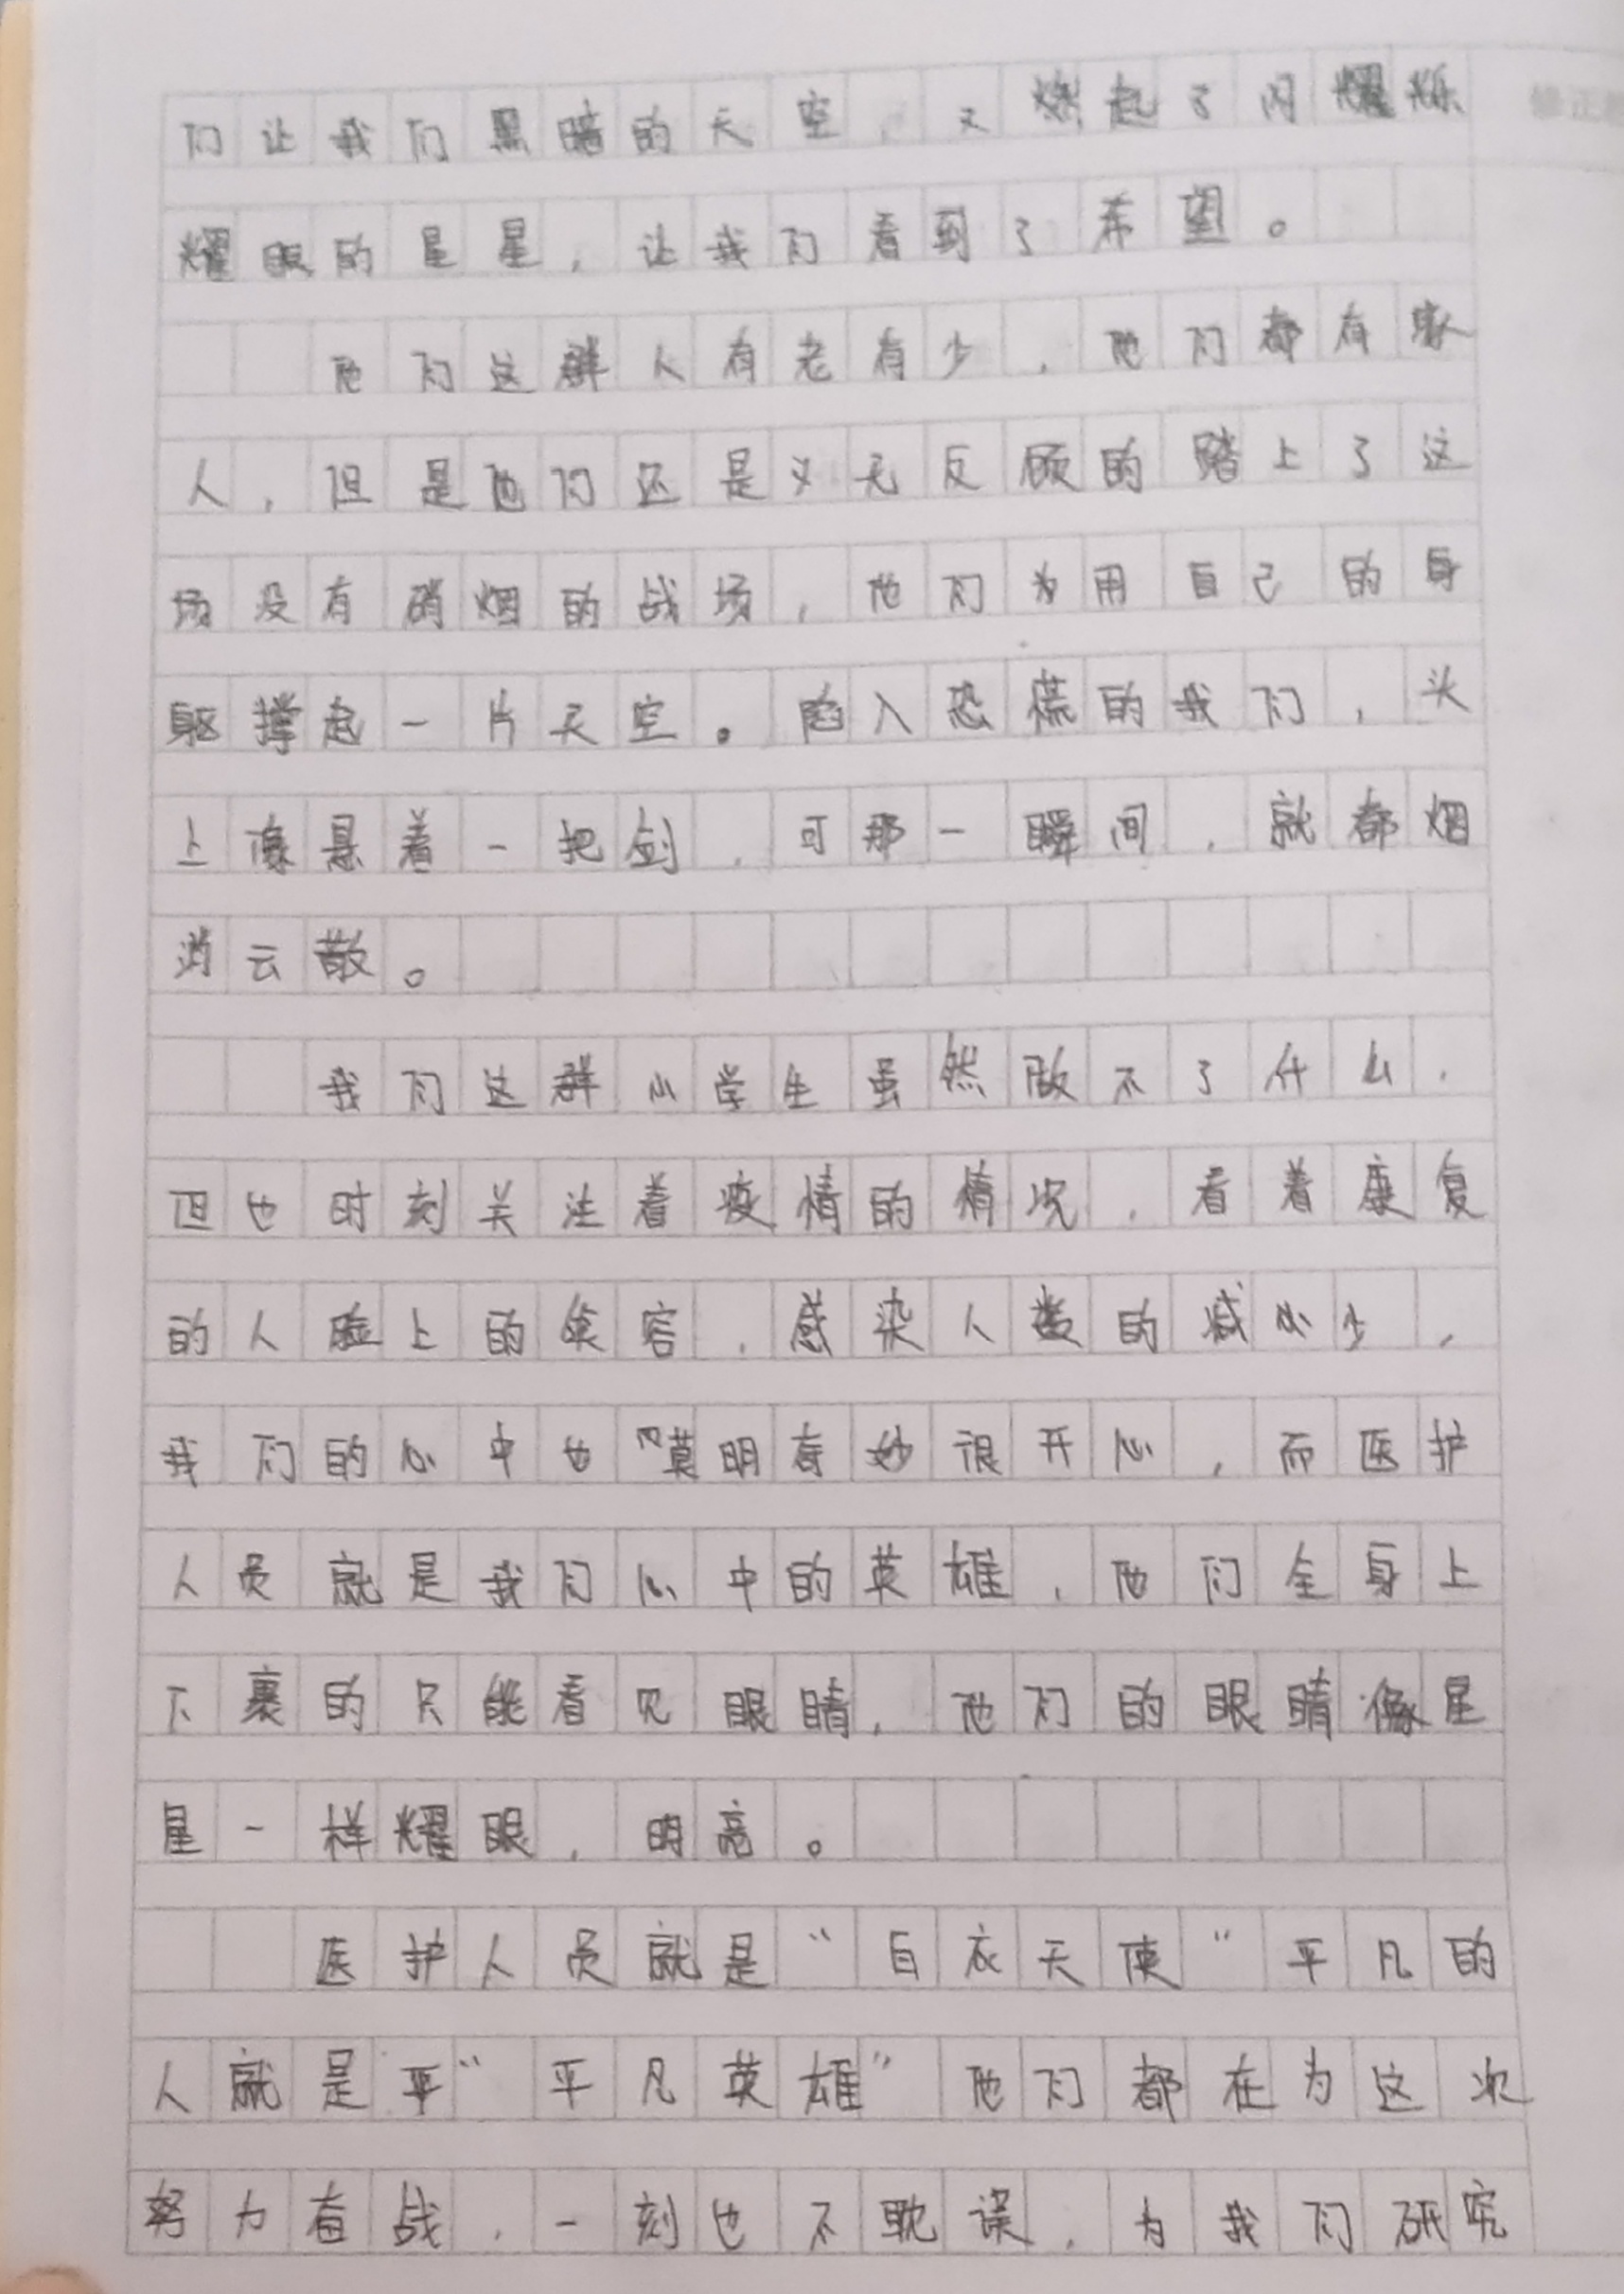 们让我们黑暗的天空，又燃起了闪耀烁
耀眼的星星，让我们看到了希望。
他们这群人有老有少，他们都有家
人，但是他们还是义无反顾的踏上了这
场没有硝烟的战场，他们为用自己的身
躯撑起一片天空。陷入恐慌的我们，头
上像悬着一把剑，可那一瞬间，就都烟
消云散。
我们这群小学生虽然做不了什么，
但也时刻关注着疫情的情况，看着康复
的人脸上的笑容，感染人数的减少，
我们的心中也莫明奇妙很开心，而医护
人员就是我们心中的英雄，他们全身上
下裹的只能看见眼睛，他们的眼睛像星
星一样耀眼，明亮。
医护人员就是“白衣天使”平凡的
人就是平“平凡英雄”他们都在为这次
努力奋战，一刻也不耽误，为我们研究